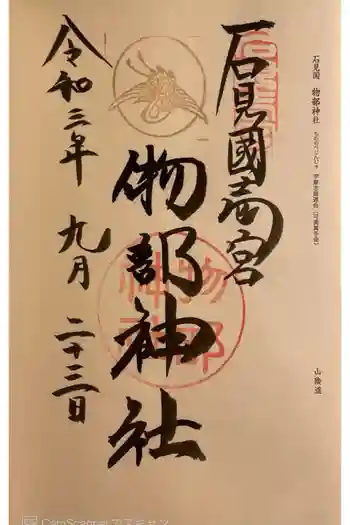 石見國一宮
物部神社
令和三年 九月 二十三日
石見国 物部神社
山陰道
物部神社
CamScanner でスキャン